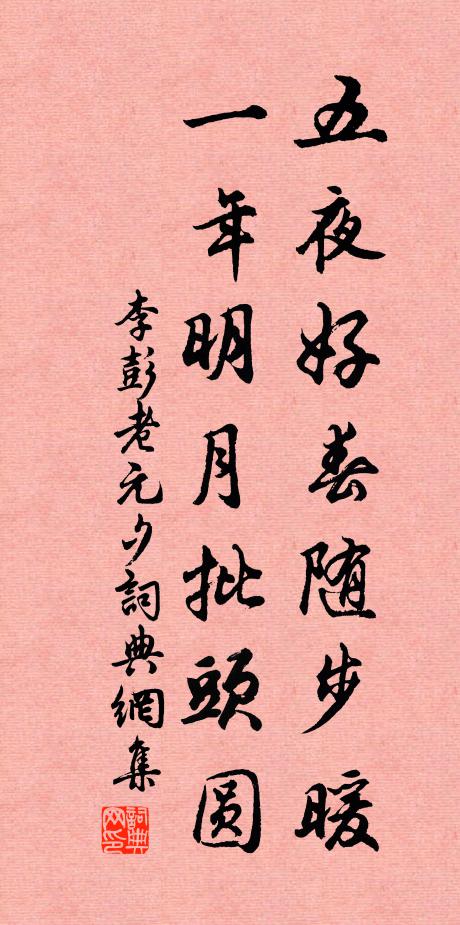 五夜好春随步暖
一年明月批頭圆
李彭老元夕詞典網集
詞典网印